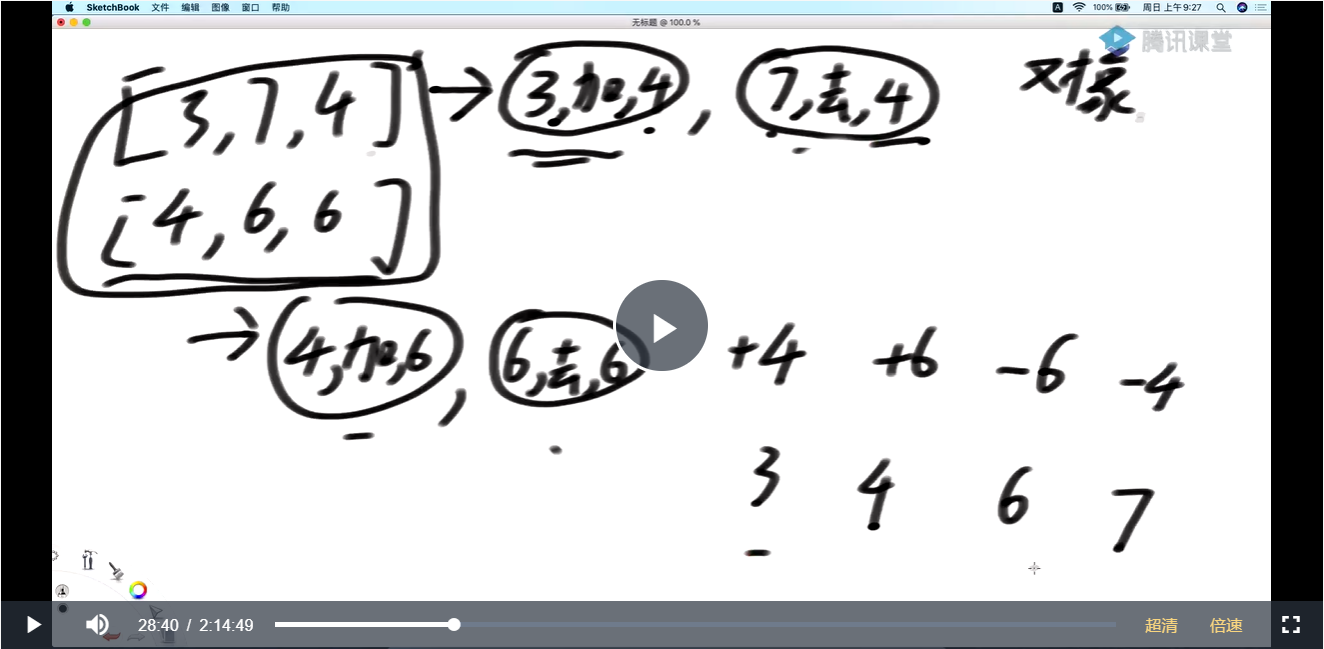 SketchBook 文件 编辑 图像 窗口 帮助 A 100% 周日 上午9:27
无标题 @ 100.0 %
腾讯课堂
[3,7,4] → 3,加,4 , 7,去,4 对象
[4,6,6]
→ 4,加,6 , 6,去,6 +4 +6 -6 -4
3 4 6 7
28:40 / 2:14:49 超清 倍速